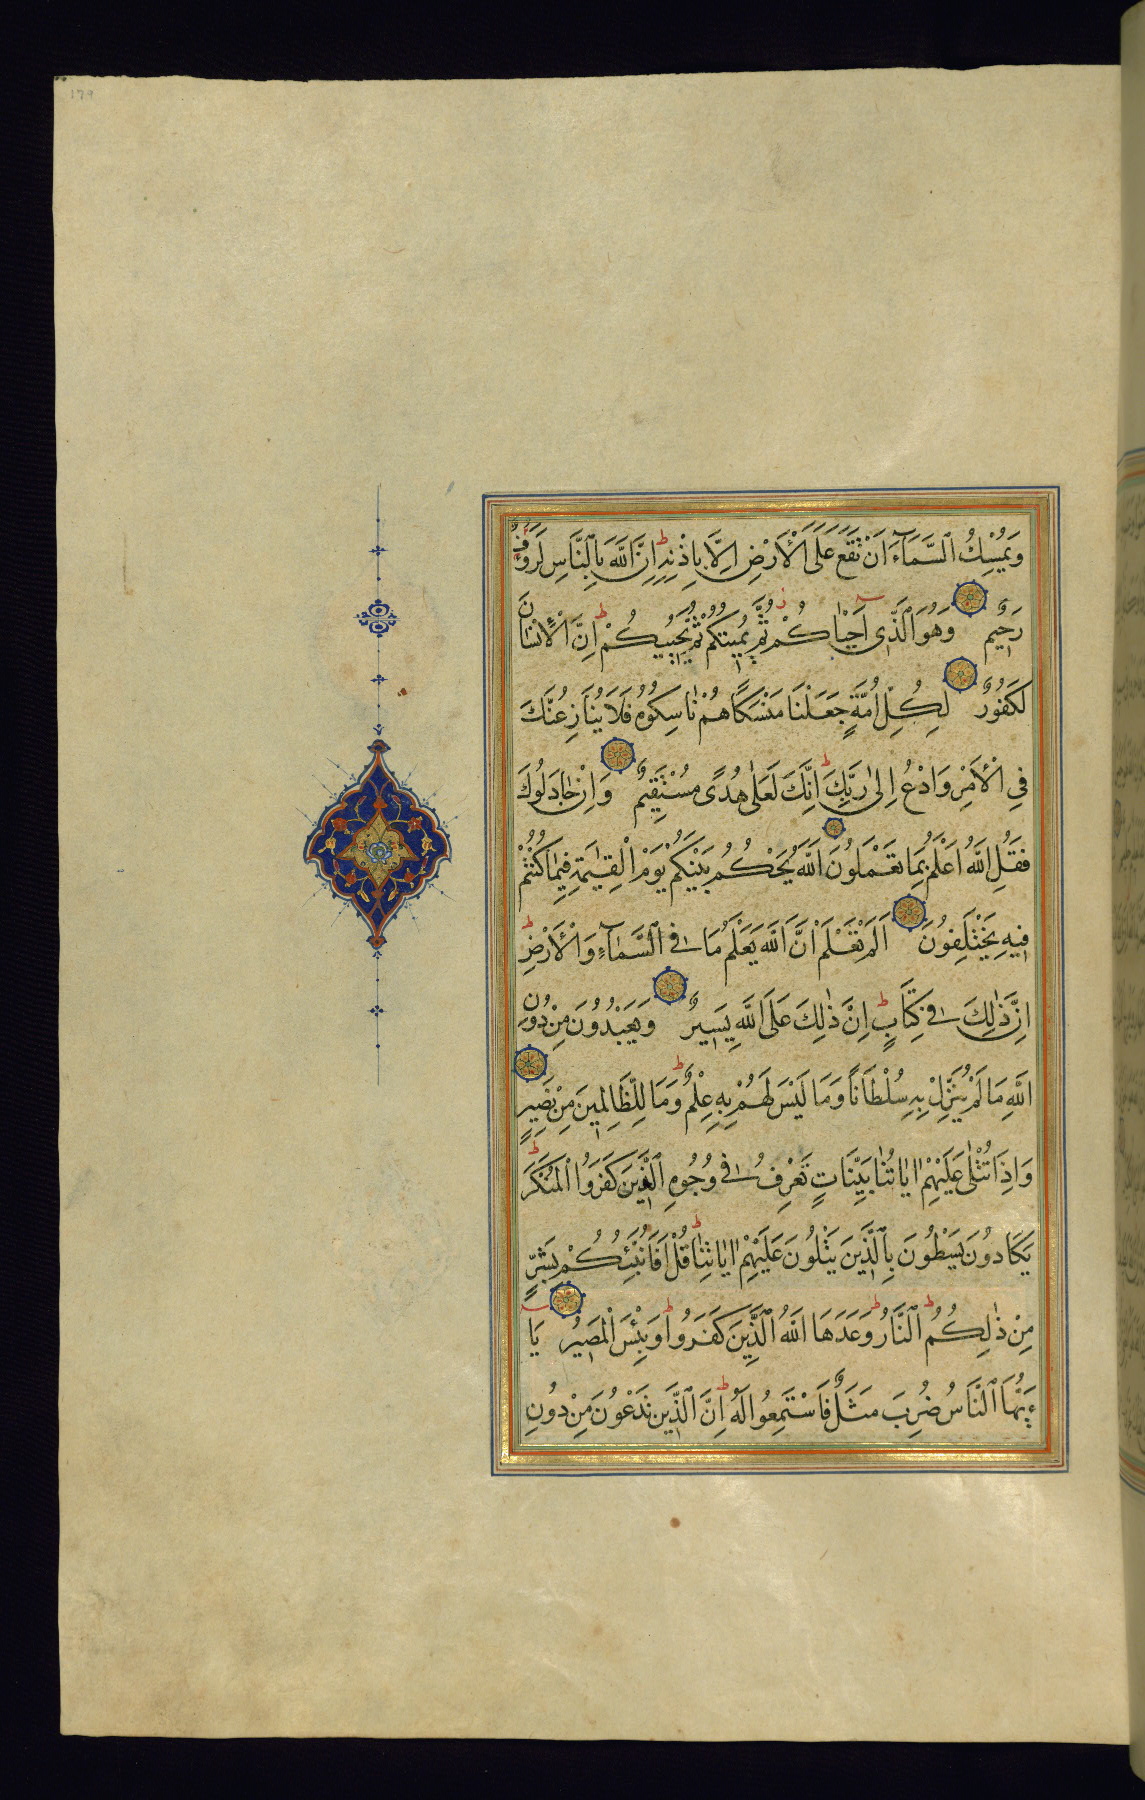 ١٧٩
وَيُمْسِكُ ٱلسَّمَآءَ اَنْ تَقَعَ عَلَى ٱلْاَرْضِ اِلَّا بِاِذْنِهِ ط اِنَّ ٱللّٰهَ بِالنَّاسِ لَرَؤُفٌ
رَحِيمٌ وَهُوَ ٱلَّذِى اَحْيَاكُمْ ثُمَّ يُمِيتُكُمْ ثُمَّ يُحْيِيكُمْ ط اِنَّ ٱلْاِنْسَانَ
لَكَفُورٌ لِكُلِّ اُمَّةٍ جَعَلْنَا مَنْسَكًا هُمْ نَاسِكُوهُ فَلَا يُنَازِعُنَّكَ
فِى ٱلْاَمْرِ وَادْعُ اِلىٰ رَبِّكَ ط اِنَّكَ لَعَلىٰ هُدًى مُسْتَقِيمٍ وَاِنْ جَادَلُوكَ
فَقُلِ ٱللّٰهُ اَعْلَمُ بِمَا تَعْمَلُونَ ٱللّٰهُ يَحْكُمُ بَيْنَكُمْ يَوْمَ ٱلْقِيٰمَةِ فِيمَا كُنْتُمْ
فِيهِ تَخْتَلِفُونَ اَلَمْ تَعْلَمْ اَنَّ ٱللّٰهَ يَعْلَمُ مَا فِى ٱلسَّمَآءِ وَٱلْاَرْضِ ط
اِنَّ ذٰلِكَ فِى كِتَابٍ ط اِنَّ ذٰلِكَ عَلَى ٱللّٰهِ يَسِيرٌ وَيَعْبُدُونَ مِنْ دُونِ
ٱللّٰهِ مَا لَمْ يُنَزِّلْ بِهِ سُلْطَانًا وَمَا لَيْسَ لَهُمْ بِهِ عِلْمٌ ط وَمَا لِلظَّالِمِينَ مِنْ نَصِيرٍ
وَاِذَا تُتْلىٰ عَلَيْهِمْ اٰيَاتُنَا بَيِّنَاتٍ تَعْرِفُ فِى وُجُوهِ ٱلَّذِينَ كَفَرُوا ٱلْمُنْكَرَ ط
يَكَادُونَ يَسْطُونَ بِٱلَّذِينَ يَتْلُونَ عَلَيْهِمْ اٰيَاتِنَا ط قُلْ اَفَاُنَبِّئُكُمْ بِشَرٍّ
مِنْ ذٰلِكُمُ ط ٱلنَّارُ ط وَعَدَهَا ٱللّٰهُ ٱلَّذِينَ كَفَرُوا ط وَبِئْسَ ٱلْمَصِيرُ يَا
ءَيُّهَا ٱلنَّاسُ ضُرِبَ مَثَلٌ فَاسْتَمِعُوا لَهُ ط اِنَّ ٱلَّذِينَ تَدْعُونَ مِنْ دُونِ